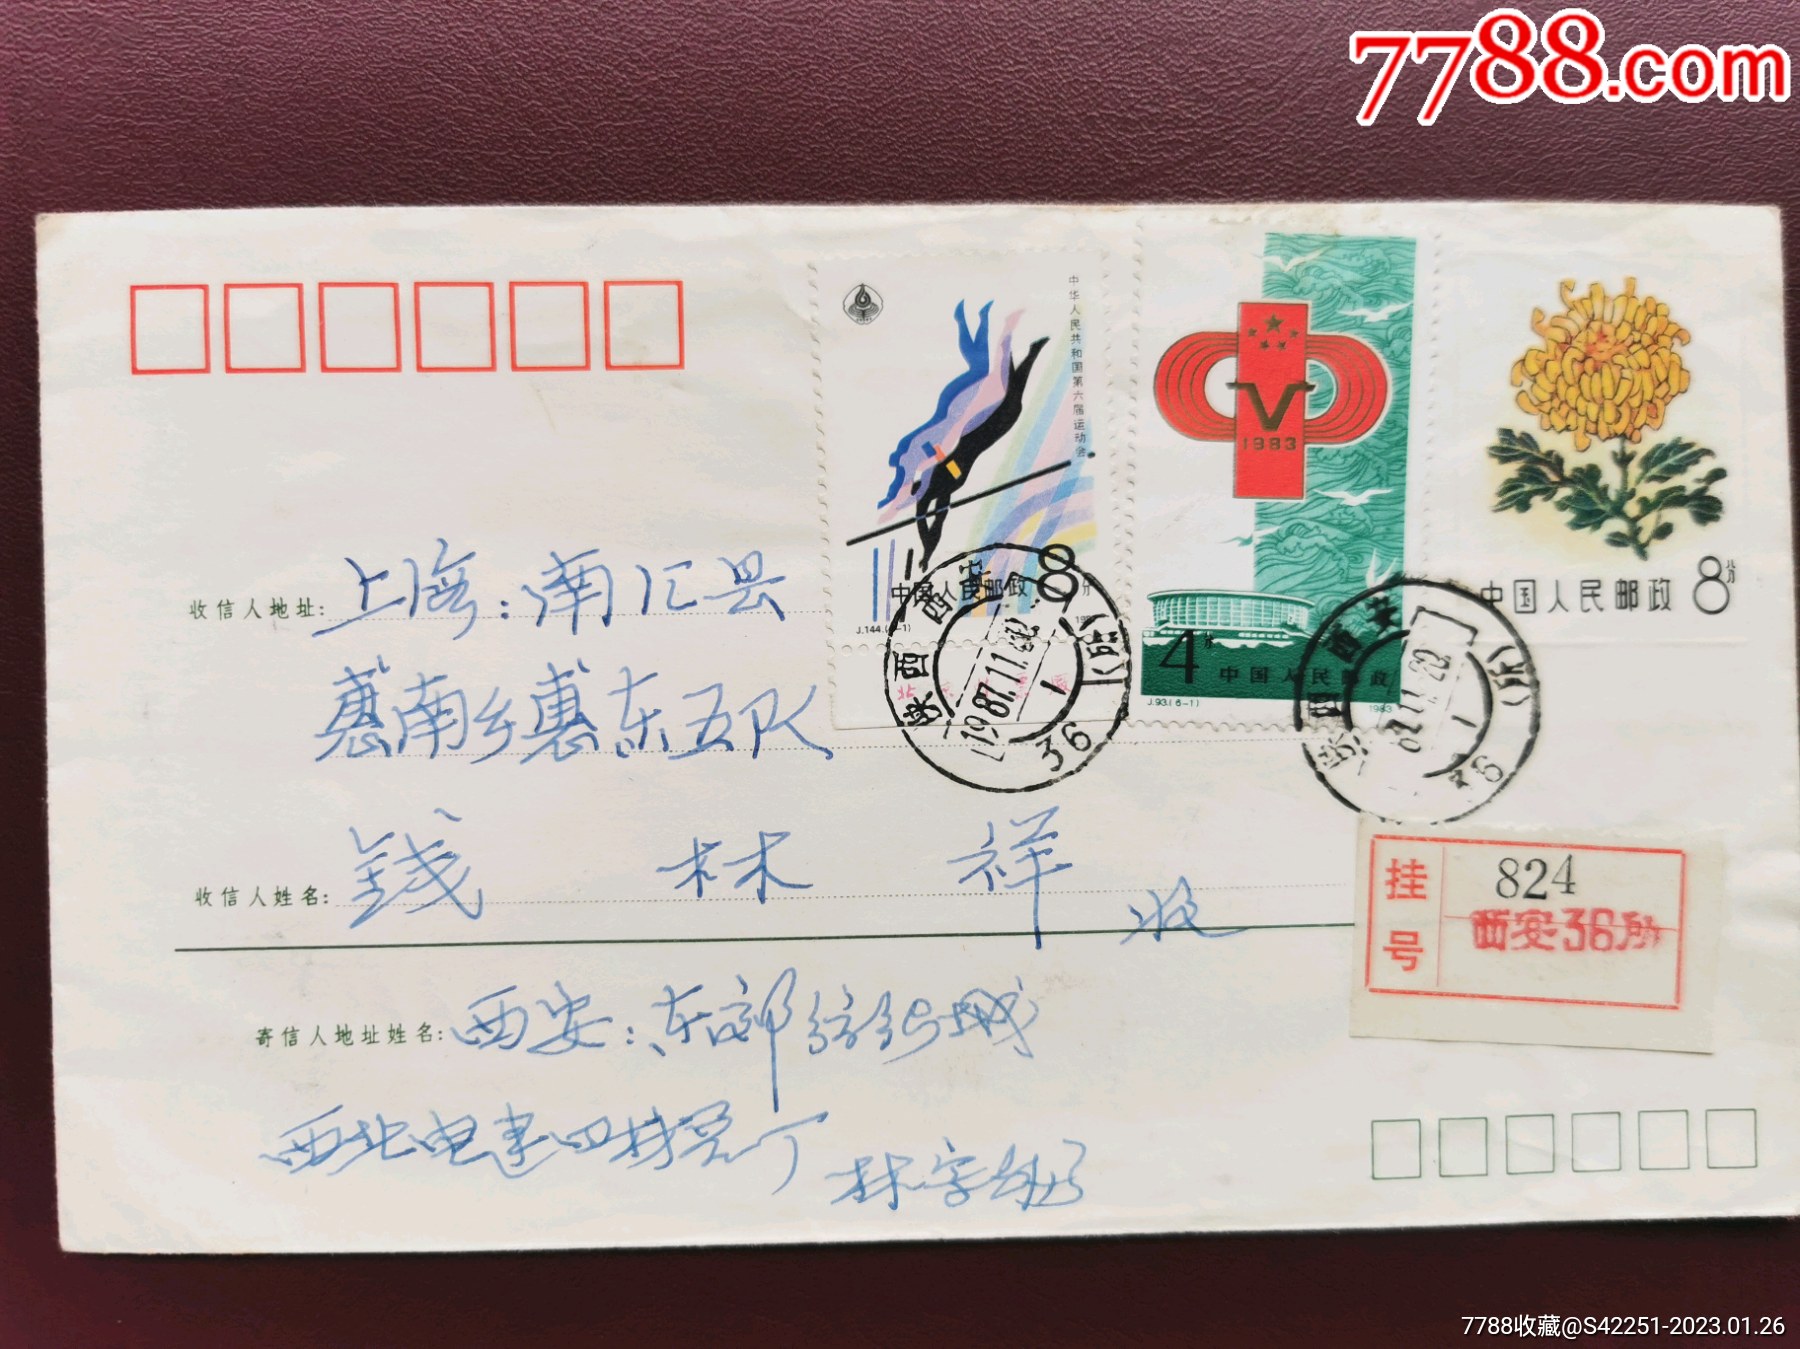 7788.com
中华人民共和国第六届运动会
中国人民邮政 8分
J.144.(4-1)
V
1983
4分
中国人民邮政
J.93.(6-1) 1983
中国人民邮政 8分
陕西 西安
1987.11.22.
1
36
(支)
陕西 西安
1
36
(支)
收信人地址: 上海:南汇县
惠南乡惠东五队
收信人姓名: 钱 林 祥 收
挂号
824
西安36支
寄信人地址姓名: 西安:东郊纺织城
西北电建四
7788收藏@S42251-2023.01.26